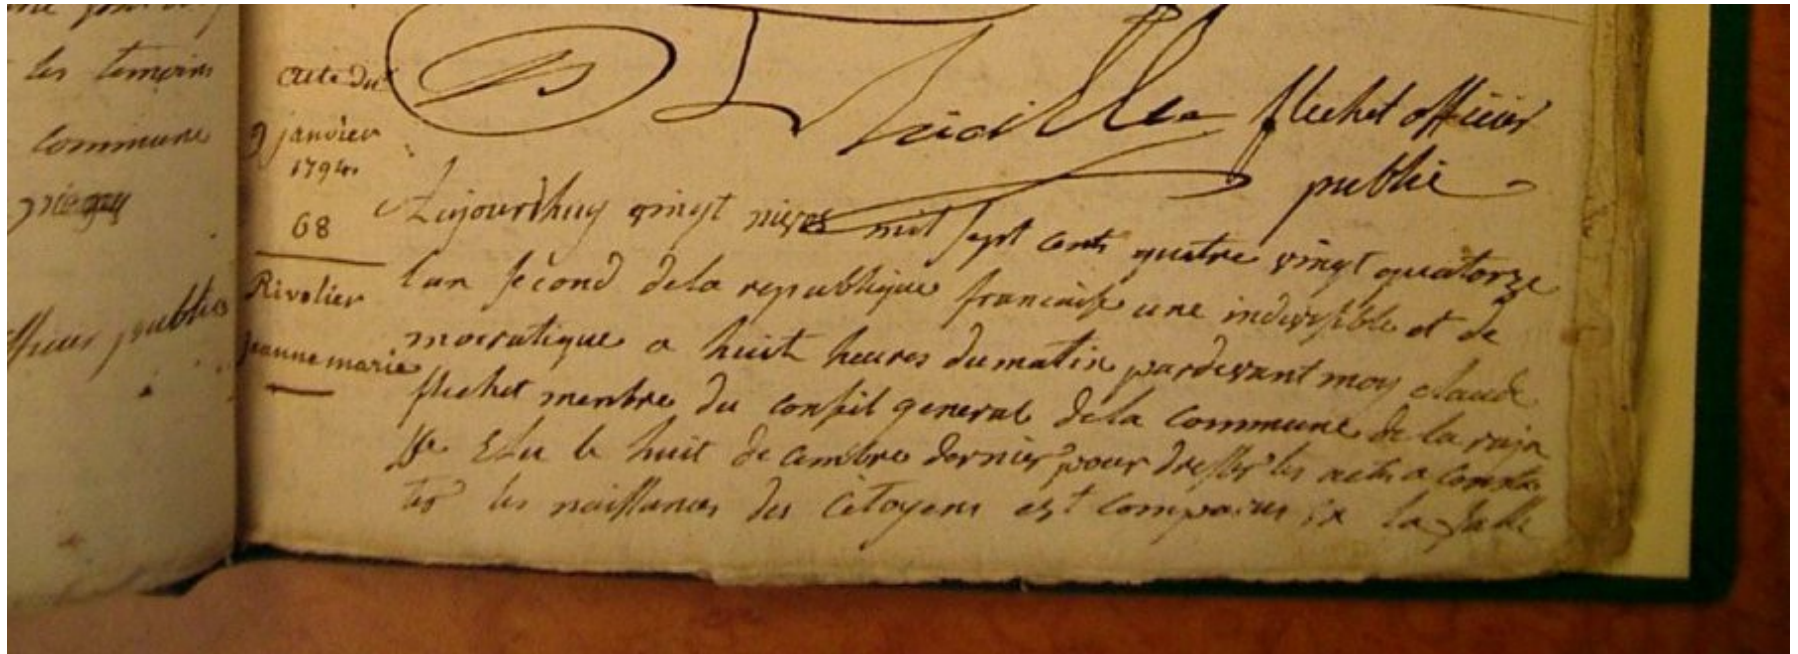 les temoins
commune
officier public
acte du
9 janvier
1794
68
Rivolier
jeanne marie
flechet officier
public
Aujourdhuy vingt nivos mil sept cents quatre vingt quatorze
lan second dela republique francaise une indivisible et de
mocratique a huit heures du matin pardevant moy claude
flechet membre du conseil general dela commune de la
Elu le huit decembre dernier pour dresser les actes a consta
ter les naissances des citoyens est comparus la salle